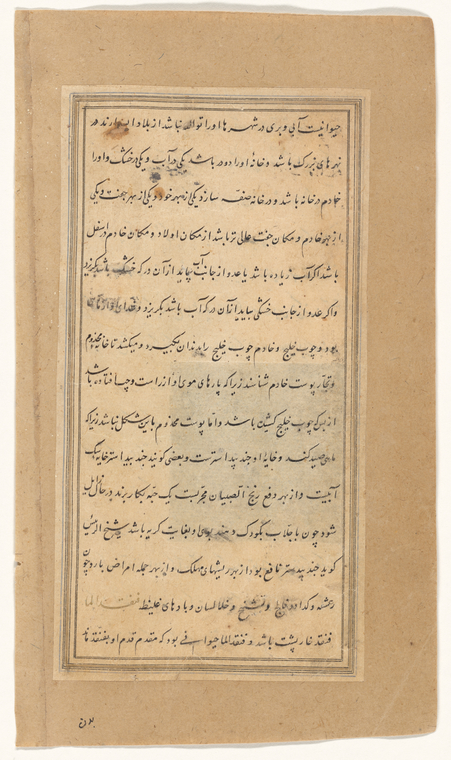 حیوانیست آبی و بری در شهرها او را توالد نباشد از بلاد ایسو آرند در
نهرهای بزرگ باشد و خانهٔ او را دو در باشد یکی در آب و یکی در خشک و او را
خادم در خانه باشد و در خانه صفه سازد یکی از بهر خود و یکی از بهر جفت و یکی
از بهر خادم و مکان جفت عالی تر باشد از مکان اولاد و مکان خادم در اسفل
باشد اگر آب زیاده باشد یا عدو از جانب آب بیاید از آن در که خشک باشد بگریزد
و اگر عدو از جانب خشکی بیاید از آن در که آب باشد بگریزد و غذای او از ماهی
بود و چوب خلیج و خادم چوب خلیج را بدندان میگیرد و میکشد تا خانه مخدوم
و تجار پوست خادم شناسند زیرا که پارهای موی او از راست و چپ افتاده باشد
از بس که چوب خلیج کشیده باشد و اما پوست مخدوم باین شکل نباشد زیرا که
ماهی صید کند و خایهٔ او جند بیدستر است و بعضی گویند جند بیدستر خایه سگ
آبیست و از بهر دفع رنج الصبیان مجربست یک حبه بکار برند در حال زایل
شود چون با جلاب بکودک دهند بوی او بغایت کریه باشد شیخ الرئیس
گوید جند بیدستر نافع بود از بهر ریشهای مهلک و از بهر جمله امراض بارد چون
رعشه و کزاز و فالج و تشنج و خلل لسان و بادهای غلیظ قنفذ الما
قنفذ خارپشت باشد و قنفذ الما حیوانی بود که مقدم قدم او بقنفذ ماند